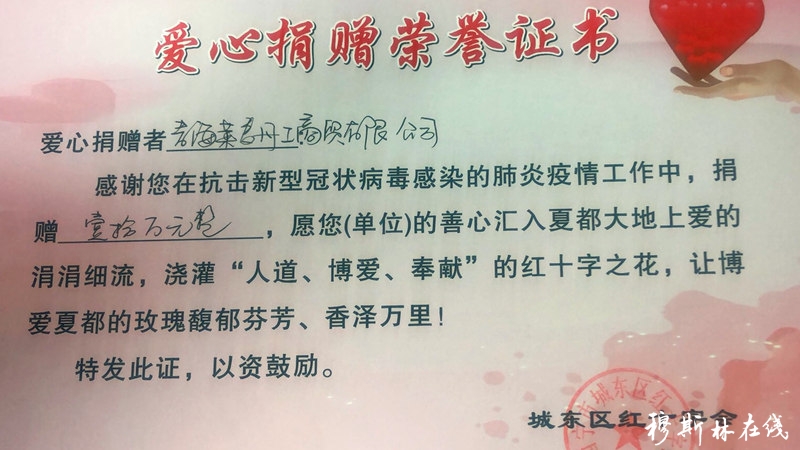 爱心捐赠荣誉证书
爱心捐赠者青海莱 工商贸有限公司
感谢您在抗击新型冠状病毒感染的肺炎疫情工作中，捐
赠 壹拾万元整 ，愿您(单位)的善心汇入夏都大地上爱的
涓涓细流，浇灌“人道、博爱、奉献”的红十字之花，让博
爱夏都的玫瑰馥郁芬芳、香泽万里！
特发此证，以资鼓励。
城东区红十字会
穆斯林在线